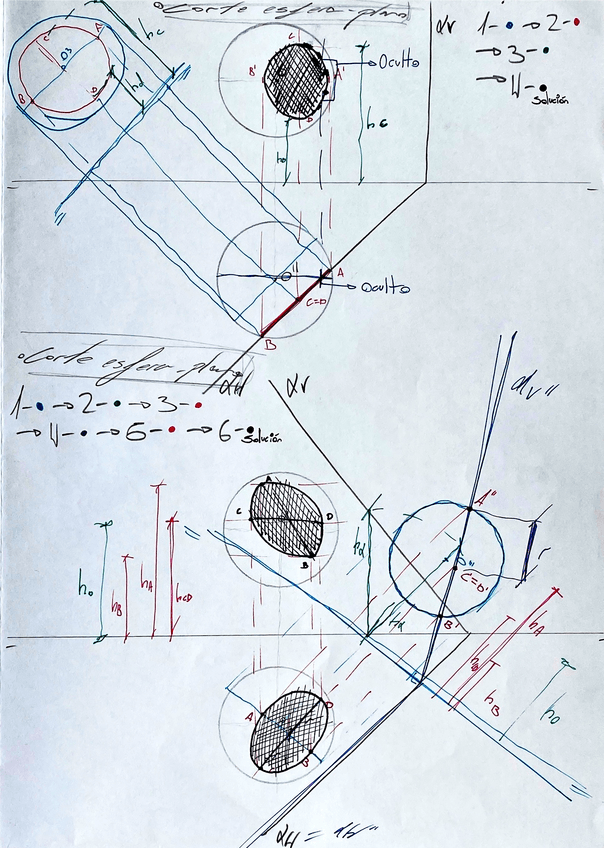 Corte esfera-plano
αv
1-• → 2-•
→ 3-•
→ 4-•
Solución
hc
hd
O3
C
A
B
D
B'
A'
D
Oculto
hc
O''
A
C=D
B
Oculto
αH
Corte esfera-plano
1-• → 2-• → 3-•
→ 4-• → 5-• → 6-•
Solución
αv
αv''
A
C
D
B
A''
O''
C'=D'
B'
r
hα
hα
ho
hB
hA
hCD
hA
hB
ho
A
D
B
αH = 15''